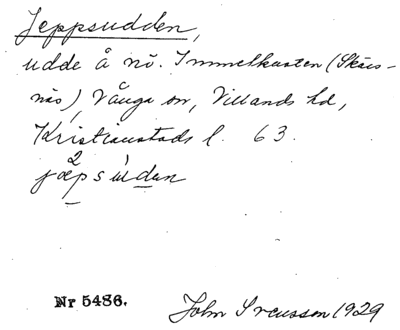 Jeppsudden,
udde å nö. Immelkusten (Skärs-
näs) Vånga sn, Villands hd,
Kristianstads l. 63.
Nr 5486.
John Svensson 1929